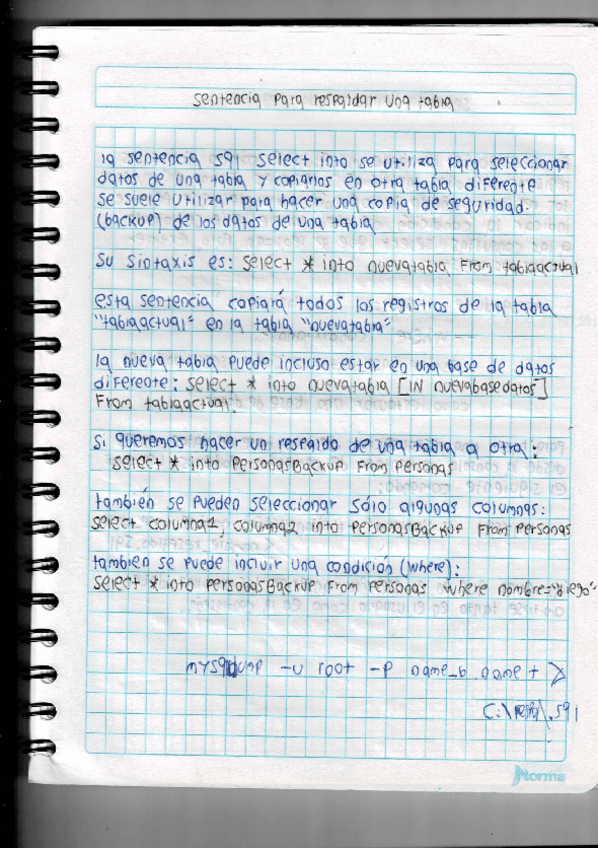 Sentencia para respaldar una tabla
la sentencia sql select into se utiliza para seleccionar
datos de una tabla y copiarlos en otra tabla diferente
se suele utilizar para hacer una copia de seguridad.
(backup) de los datos de una tabla
su sintaxis es: select * into nuevatabla From tablaactual
esta sentencia copiará todos los registros de la tabla
"tablaactual" en la tabla "nuevatabla"
la nueva tabla puede incluso estar en una base de datos
diferente: select * into nuevatabla [IN nuevabasedatos]
From tablaactual.
si queremos hacer un respaldo de una tabla a otra:
select * into PersonasBackup From Personas
también se pueden seleccionar sólo algunas columnas:
select columna1, columna2 into PersonasBackup From Personas
tambien se puede incluir una condición (where):
select * into PersonasBackup From Personas where nombre="diego"
mysqldump -u root -p name_b name t >
C:\resp\.sql
Norma